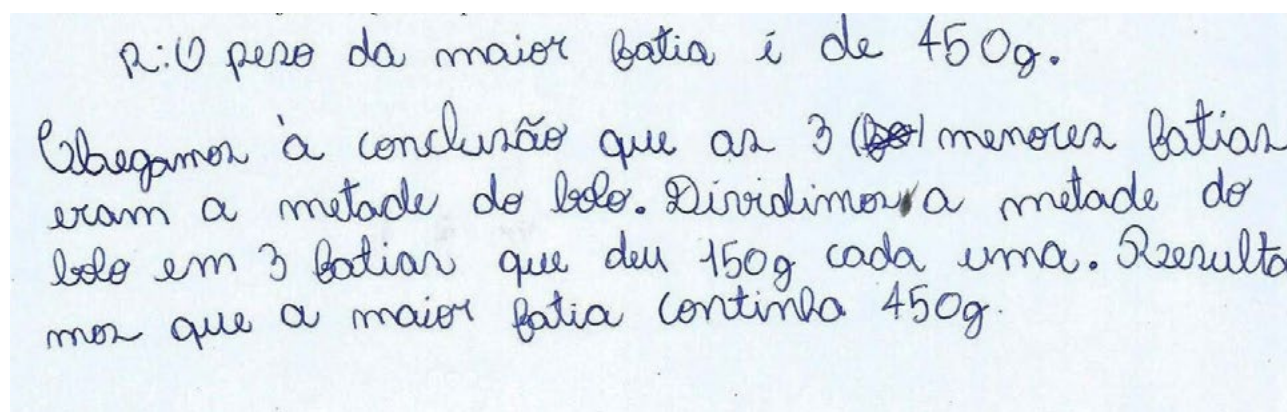 R: O peso da maior fatia é de 450g.
Chegamos à conclusão que as 3 menores fatias
eram a metade do bolo. Dividimos a metade do
bolo em 3 fatias que deu 150g cada uma. Resulta
mos que a maior fatia continha 450g.